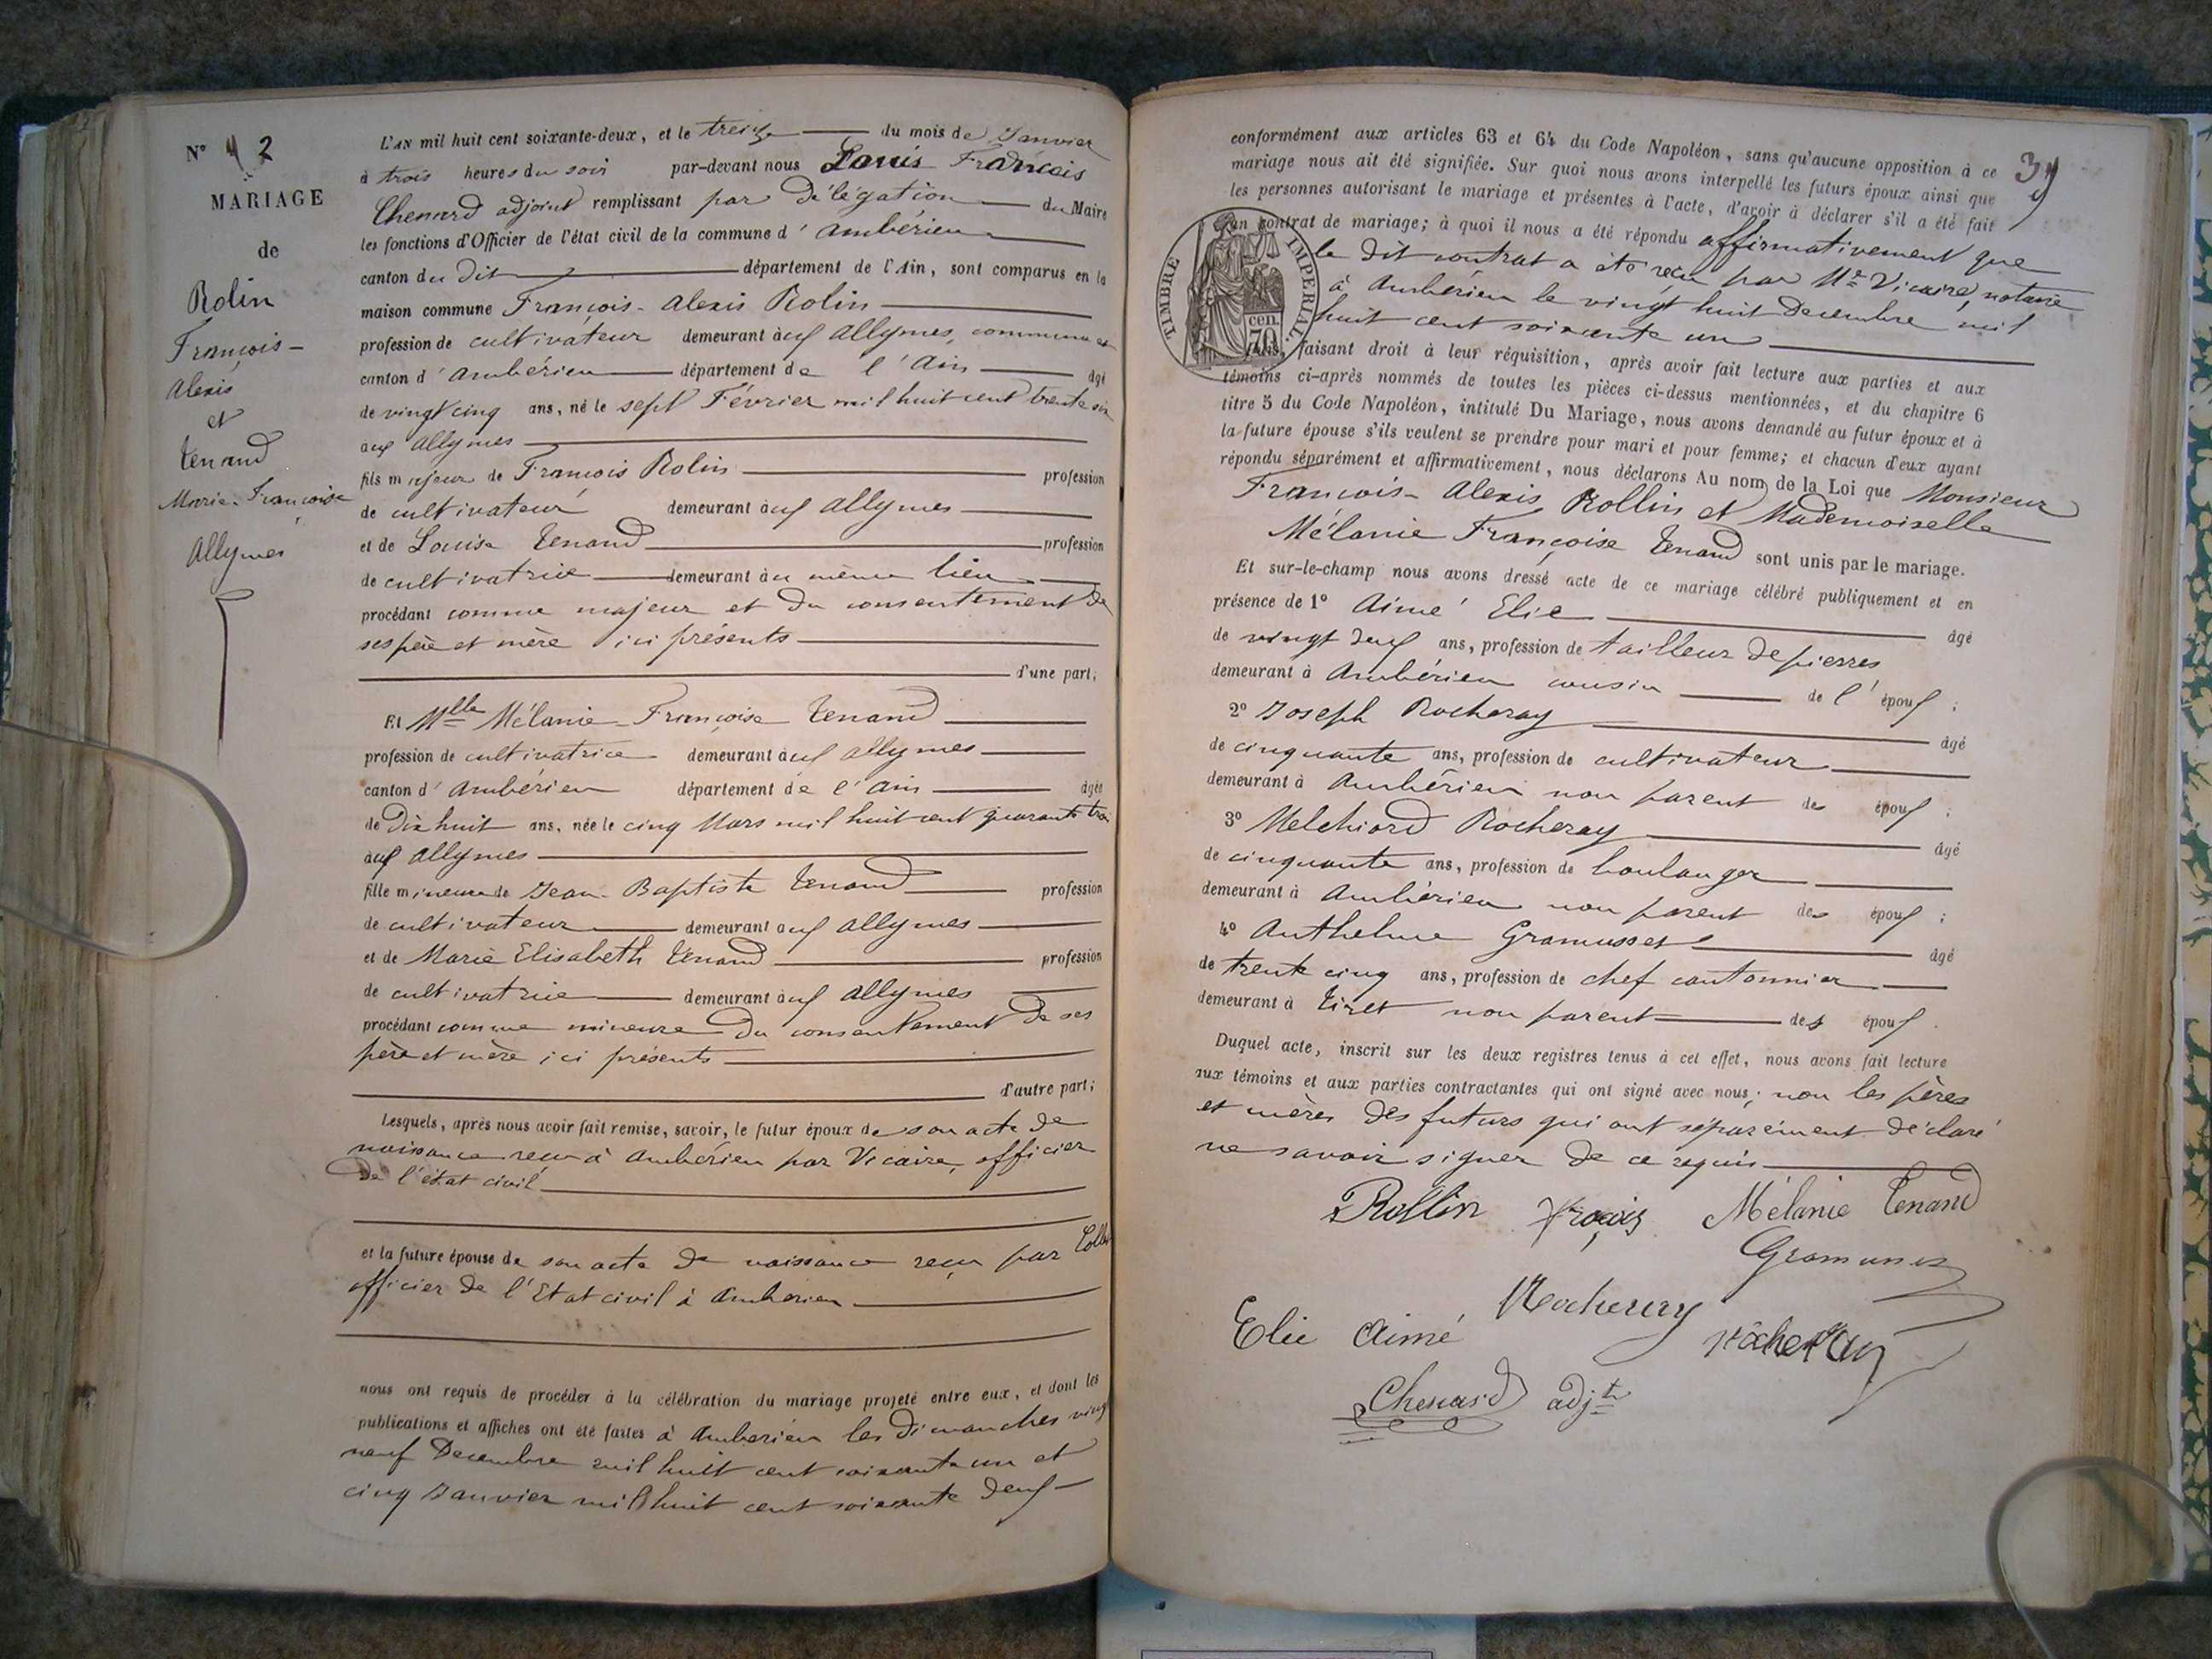 N° 42
MARIAGE
de
Rolin
François-
Alexis
et
Tenand
Marie-Françoise
Allymes
L'AN mil huit cent soixante-deux, et le treize du mois de Janvier
à trois heures du soir par-devant nous Louis François
Chenard adjoint remplissant par délégation du Maire
les fonctions d'Officier de l'état civil de la commune d'Ambérieu
canton du dit département de l'Ain, sont comparus en la
maison commune François-Alexis Rolin
profession de cultivateur demeurant aux Allymes, commune et
canton d'Ambérieu département de l'Ain âgé
de vingt cinq ans, né le sept Février mil huit cent trente six
aux Allymes
fils majeur de François Rolin profession
de cultivateur demeurant aux Allymes
et de Louise Tenand profession
de cultivatrice demeurant au même lieu
procédant comme majeur et du consentement de
ses père et mère ici présents
d'une part;
Et Mlle Mélanie-Françoise Tenand
profession de cultivatrice demeurant aux Allymes
canton d'Ambérieu département de l'Ain âgée
de Dix huit ans, née le cinq Mars mil huit cent quarante trois
aux Allymes
fille mineure de Jean-Baptiste Tenand profession
de cultivateur demeurant aux Allymes
et de Marie Elisabeth Tenand profession
de cultivatrice demeurant aux Allymes
procédant comme mineure du consentement de ses
père et mère ici présents
d'autre part;
Lesquels, après nous avoir fait remise, savoir, le futur époux de son acte de
naissance reçu à Ambérieu par Vicaire, officier
de l'état civil
et la future épouse de son acte de naissance reçu par
officier de l'Etat civil à Ambérieu
nous ont requis de procéder à la célébration du mariage projeté entre eux, et dont les
publications et affiches ont été faites à Ambérieu les dimanches vingt
neuf Decembre mil huit cent soixante un et
cinq Janvier mil huit cent soixante deux
39
conformément aux articles 63 et 64 du Code Napoléon, sans qu'aucune opposition à ce
mariage nous ait été signifiée. Sur quoi nous avons interpellé les futurs époux ainsi que
les personnes autorisant le mariage et présentes à l'acte, d'avoir à déclarer s'il a été fait
un contrat de mariage; à quoi il nous a été répondu affirmativement que
le dit contrat a été reçu par Me Vicaire, notaire
à Ambérieu le vingt huit Decembre mil
huit cent soixante un
TIMBRE IMPERIAL
cen. 70
faisant droit à leur réquisition, après avoir fait lecture aux parties et aux
témoins ci-après nommés de toutes les pièces ci-dessus mentionnées, et du chapitre 6
titre 5 du Code Napoléon, intitulé Du Mariage, nous avons demandé au futur époux et à
la future épouse s'ils veulent se prendre pour mari et pour femme; et chacun d'eux ayant
répondu séparément et affirmativement, nous déclarons Au nom de la Loi que Monsieur
François-Alexis Rollin et Mademoiselle
Mélanie Françoise Tenand sont unis par le mariage.
Et sur-le-champ nous avons dressé acte de ce mariage célébré publiquement et en
présence de 1° Aimé Elie âgé
de vingt deux ans, profession de tailleur de pierres
demeurant à Ambérieu cousin de l'époux;
2° Joseph Rocheray âgé
de cinquante ans, profession de cultivateur
demeurant à Ambérieu non parent des époux;
3° Melchiord Rocheray âgé
de cinquante ans, profession de boulanger
demeurant à Ambérieu non parent des époux;
4° Anthelme Gramusset âgé
de trente cinq ans, profession de chef cantonnier
demeurant à Tiret non parent des époux.
Duquel acte, inscrit sur les deux registres tenus à cet effet, nous avons fait lecture
aux témoins et aux parties contractantes qui ont signé avec nous; non les pères
et mères des futurs qui ont séparément déclaré
ne savoir signer de ce requis
Rollin Froçois Mélanie Tenand
Rocheray
Elie Aimé
Chenard adjt